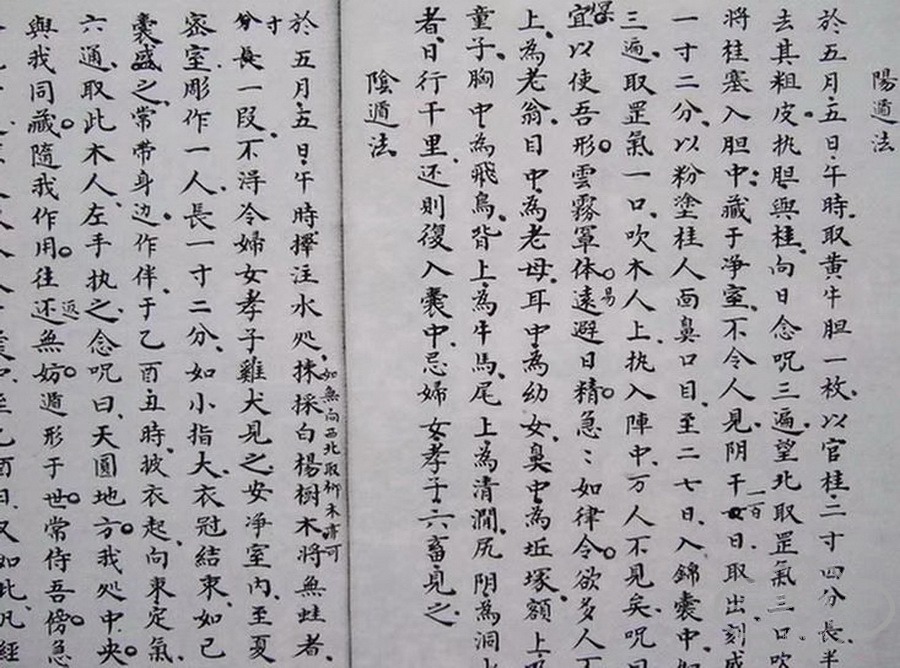 陽遁法
於五月五日午時取黄牛胆一枚以官桂二寸四分長
去其粗皮执胆與桂向日念咒三遍望北取罡氣三口吹
将桂塞入胆中藏于净室不令人見阴干一百日取出刻成
一寸二分以粉塗桂人面鼻口目至二七日入錦囊中
三遍取罡氣一口吹木人上执入陣中万人不見矣咒曰
宜以使吾形雲霧罩体遠避日精急如律令欲多人
上為老翁目中為老母耳中為幼女臭中為坵塚額上
童子胸中為飛鳥背上為牛馬尾上為清澗尻阴為洞
者日行千里还則復入囊中忌婦女孝子六畜見之
陰遁法
於五月五日午時擇注水处揀採白楊樹木将無蛙者
如無向西北取柳木亦可
寸分長一段不淂令婦女孝子雞犬見之安净室内至夏
宻室彫作一人長一寸二分如小指大衣冠結束如己
囊盛之常带身边作伴于乙酉丑時披衣起向東定氣
六通取此木人左手执之念咒曰天圓地方我处中央
與我同藏隨我作用往还返無妨遁形于世常侍吾傍急